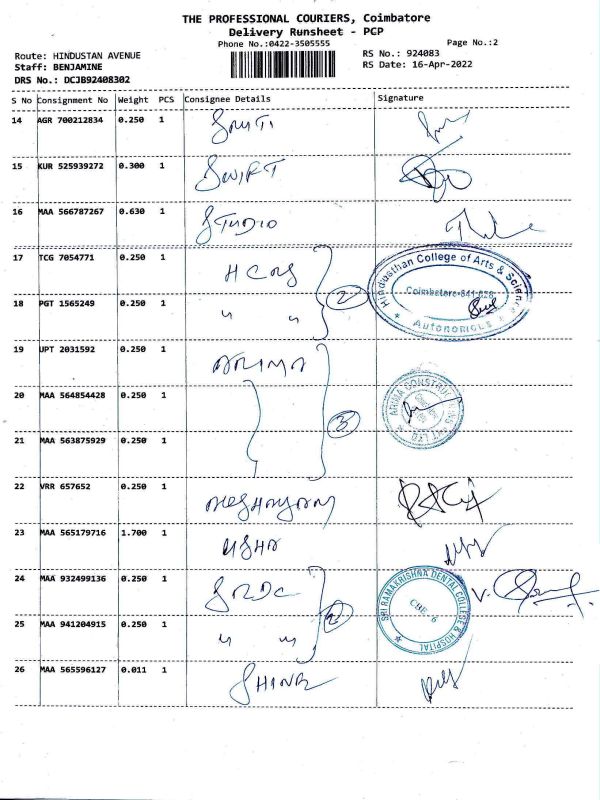 THE PROFESSIONAL COURIERS, Coimbatore
Delivery Runsheet - PCP
Phone No.:0422-3505555
Page No.:2
Route: HINDUSTAN AVENUE
RS No.: 924083
Staff: BENJAMINE
RS Date: 16-Apr-2022
DRS No.: DCJB92408302
S No Consignment No Weight PCS Consignee Details Signature
14 AGR 700212834 0.250 1 SRUTI
15 KUR 525939272 0.300 1 SWIFT
16 MAA 566787267 0.630 1 STUDIO
17 TCG 7054771 0.250 1 HCAS
Hindusthan College of Arts & Science
Coimbatore-641 028
★ AUTONOMOUS ★
2
18 PGT 1565249 0.250 1 " "
19 UPT 2031592 0.250 1 ARIMA
20 MAA 564854428 0.250 1
3
21 MAA 563875929 0.250 1
22 VRR 657652 0.250 1
23 MAA 565179716 1.700 1 USHA
24 MAA 932499136 0.250 1 SRDC
SRI RAMAKRISHNA DENTAL COLLEGE & HOSPITAL
CBE - 6
2
25 MAA 941204915 0.250 1 " "
26 MAA 565596127 0.011 1